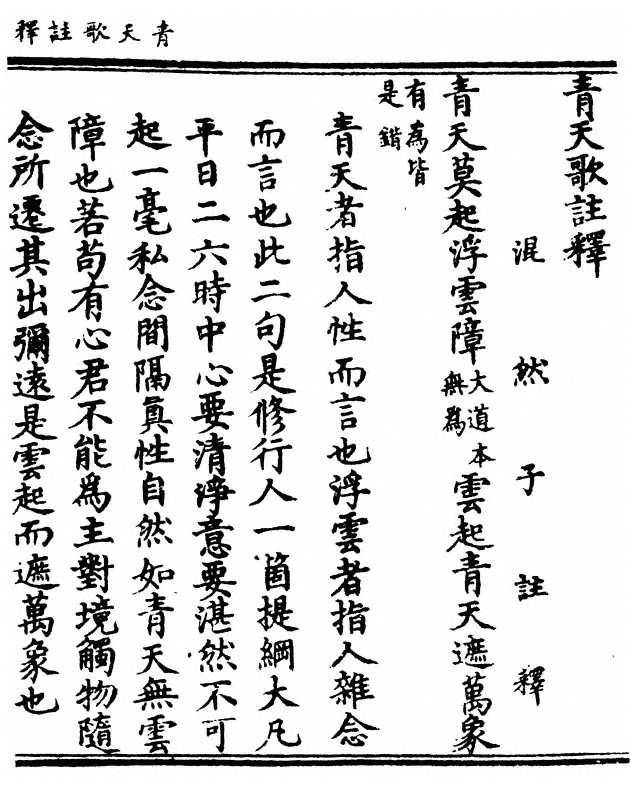 青天歌註釋
青天歌註釋
混然子註釋
青天莫起浮雲障大道本無為雲起青天遮萬象
有為皆是錯
青天者指人性而言也浮雲者指人雜念
而言也此二句是修行人一箇提綱大凡
平日二六時中心要清淨意要湛然不可
起一毫私念間隔真性自然如青天無雲
障也若苟有心君不能為主對境觸物隨
念所遷其出彌遠是雲起而遮萬象也